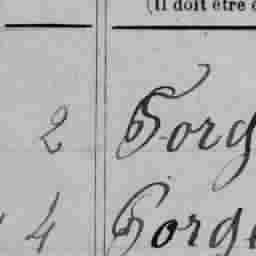 (Il doit être
2 Forg
4 Gorge